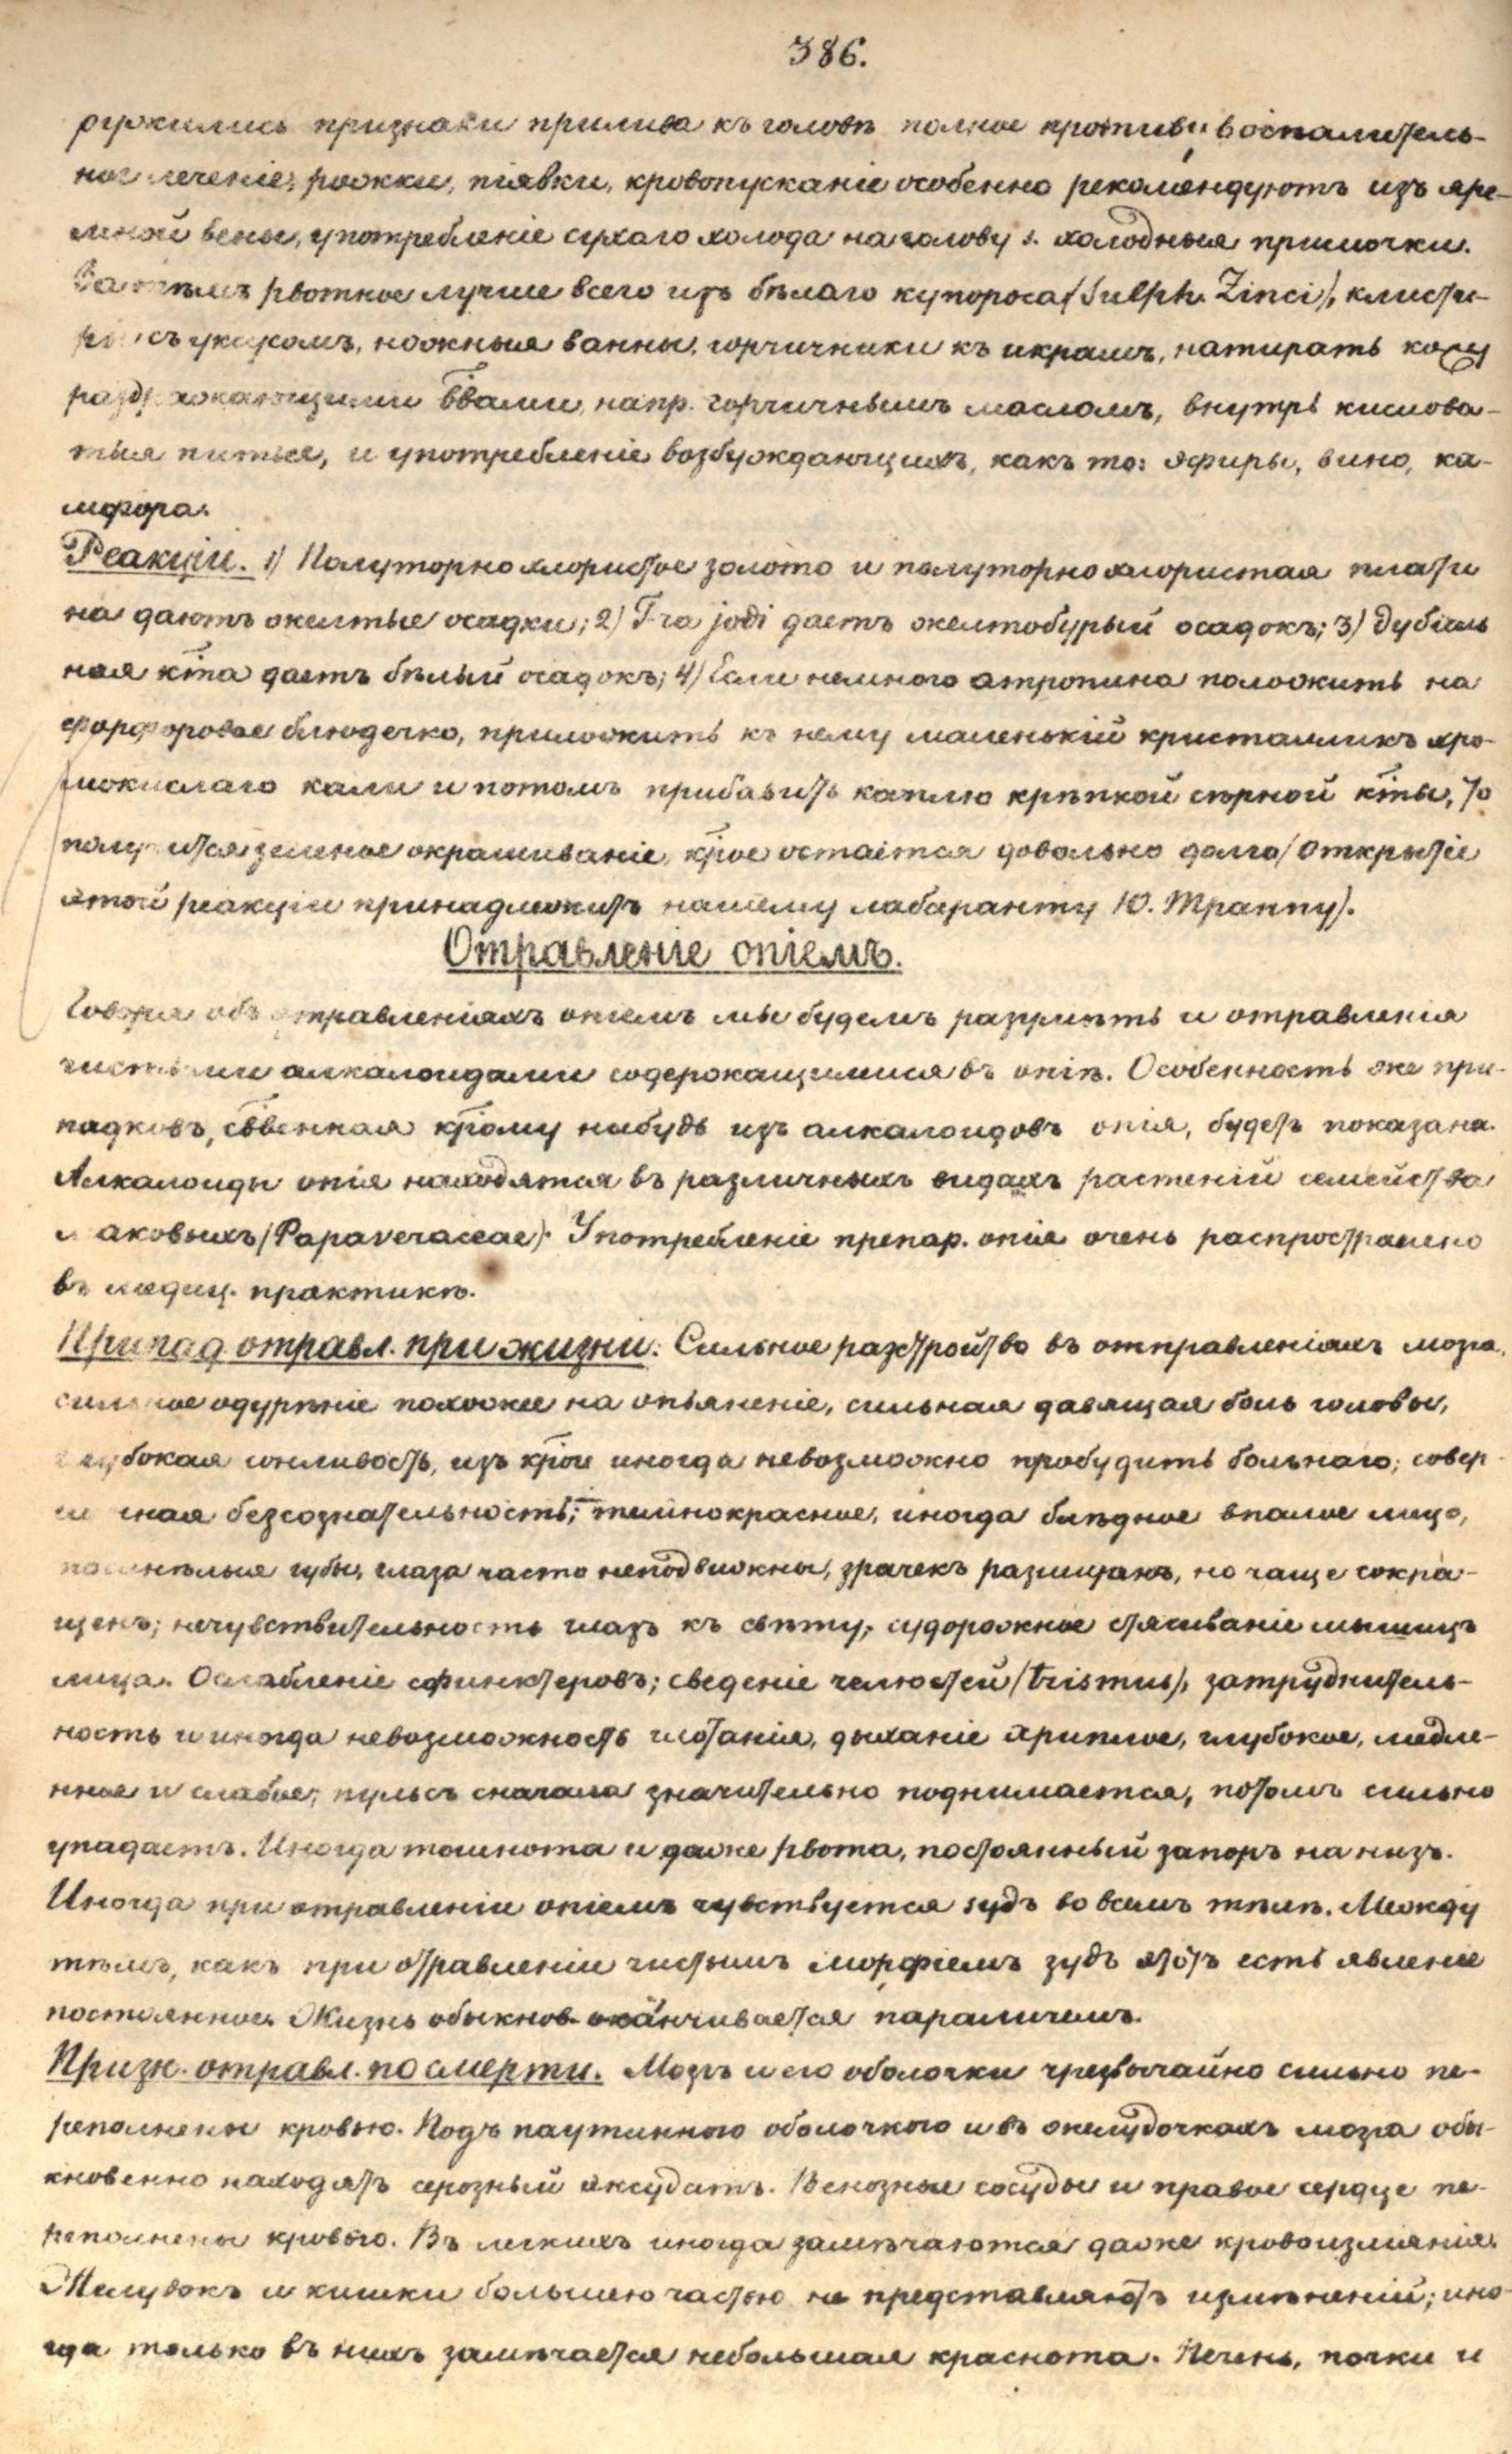 386.
ружились признаки прилива къ головѣ полное противувоспалитель-
ное леченіе; рожки, піявки, кровопусканіе особенно рекомендуютъ изъ яре-
мной вены, употребленіе сухаго холода на голову s. холодныя примочки.
Затѣмъ рвотное лучше всего изъ бѣлаго купороса (Sulph. Zinci), клисти-
ры съ уксусомъ, ножныя ванны, горчичники къ икрамъ, натирать кожу
раздражающими в̅вами, напр. горчичнымъ масломъ, внутрь кислова-
тыя питье, и употребленіе возбуждающихъ, какъ то: эфиры, вино, ка-
мфора.
Реакціи. 1) Полуторнохлористое золото и полуторнохлористая плати
на даютъ желтые осадки; 2) T-ra jodi даетъ желтобурый осадокъ; 3) Дубиль
ная к̅та даетъ бѣлый осадокъ; 4) Если немного атропина положить на
фарфоровое блюдечко, приложить къ нему маленькій кристалликъ хро-
мокислаго кали и потомъ прибавить каплю крѣпкой сѣрной к̅ты, то
получится зеленое окрашиваніе, к̅рое остается довольно долго (открытіе
этой реакціи принадлежитъ нашему лабаранту Ю. Траппу).
Отравленіе опіемъ.
Говоря объ отравленіяхъ опіемъ мы будемъ разумѣть и отравленія
чистыми алкалоидами содержащимися въ опіѣ. Особенность же при-
падковъ, с̅ввенная к̅рому нибудь изъ алкалоидовъ опія, будетъ показана.
Алкалоиды опія находятся въ различныхъ видахъ растеній семейства
маковыхъ (Papaveraceae). Употребленіе препар. опія очень распространено
въ медиц. практикѣ.
Припад отравл. при жизни: Сильное разстройство въ отправленіяхъ мозга,
сильное одурѣніе похожее на опьяненіе, сильная давящая боль головы,
глубокая сонливость, изъ к̅рой иногда невозможно пробудить больнаго; совер-
шеная безсознательность; темнокрасное, иногда блѣдное впалое лицо,
посинѣлыя губы, глаза часто неподвижны, зрачекъ разширенъ, но чаще сокра-
щенъ; нечувствительность глазъ къ свѣту; судорожное стягиваніе мышицъ
лица. Ослабленіе сфинктеровъ; сведеніе челюстей (trismus), затруднитель-
ность и иногда невозможность глотанія, дыханіе хриплое, глубокое, медле-
нное и слабое; пульсъ сначала значительно поднимается, потомъ сильно
упадаетъ. Иногда тошнота и даже рвота, постоянный запоръ на низъ.
Иногда при отравленіи опіемъ чувствуется зудъ во всемъ тѣлѣ. Между
тѣмъ, какъ при отравленіи чистымъ морфіемъ зудъ этотъ есть явленіе
постоянное. Жизнь обыкнов. оканчивается параличемъ.
Призн. отравл. по смерти. Мозгъ и его оболочки чрезвычайно сильно пе-
реполнены кровью. Подъ паутинною оболочкою и въ желудочкахъ мозга обы-
кновенно находятъ серозный эксудатъ. Венозные сосуды и правое сердце пе-
реполнены кровью. Въ легкихъ иногда замѣчаются даже кровоизліянія.
Желудокъ и кишки большею частью не представляютъ измѣненій; ино-
гда только въ нихъ замѣчается небольшая краснота. Печень, почки и